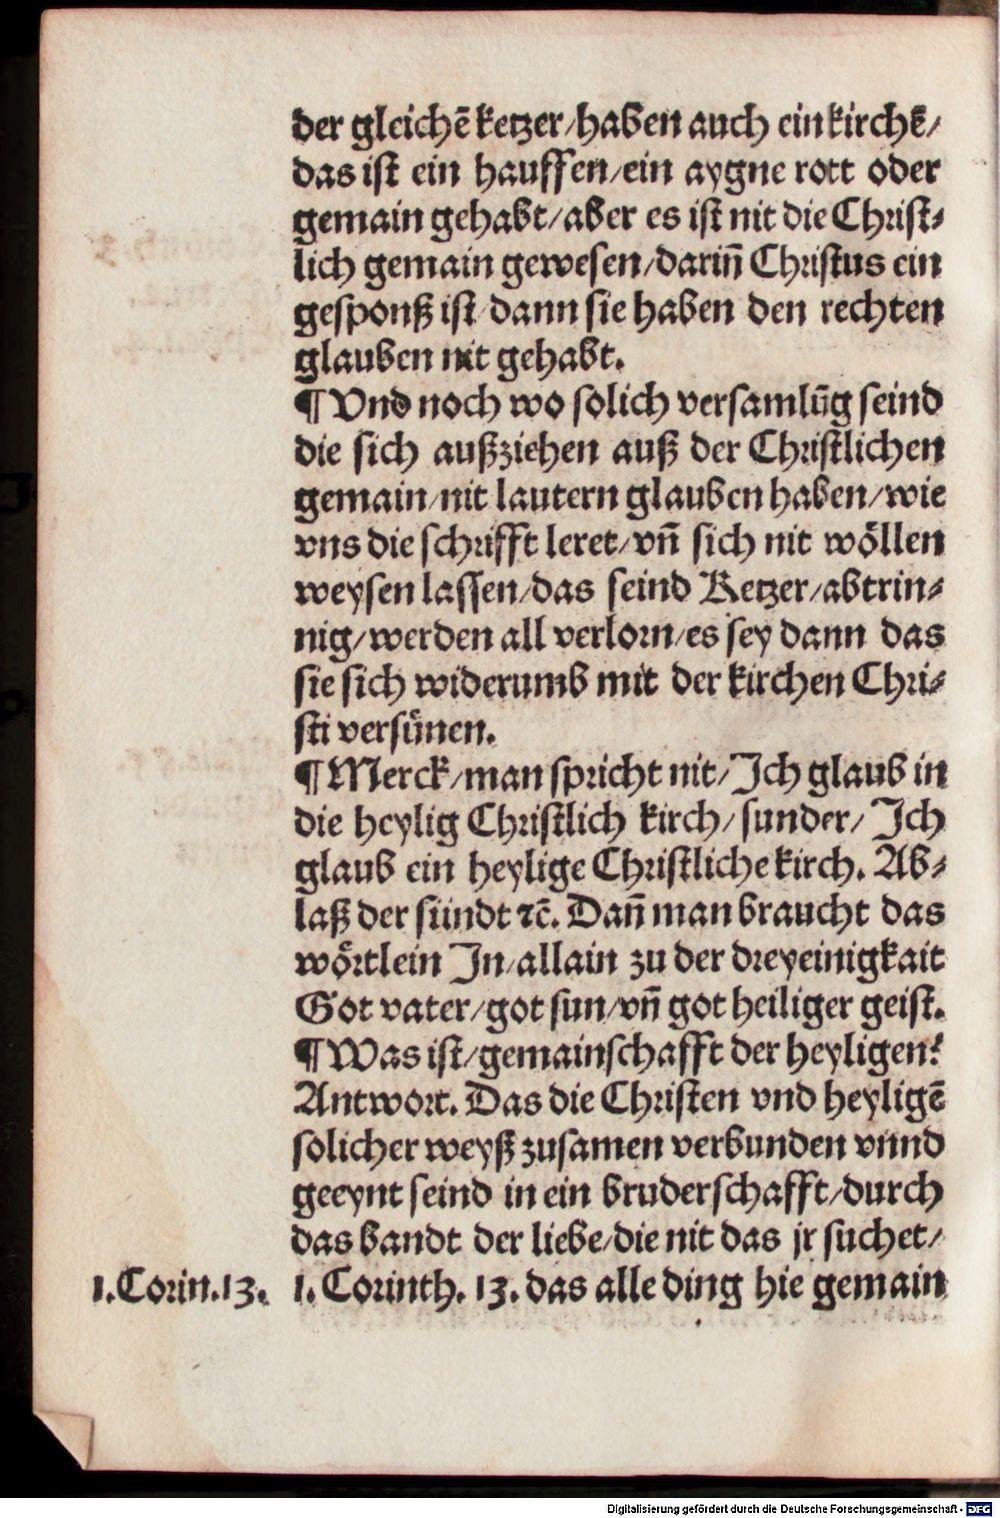 der gleichē ketzer/haben auch ein kirchē/
das ist ein hauffen/ein aygne rott oder
gemain gehabt/aber es ist nit die Christ⸗
lich gemain gewesen/darin̄ Christus ein
gesponß ist/dann sie haben den rechten
glauben nit gehabt.
¶ Vnd noch wo solich versamlūg seind
die sich außziehen auß der Christlichen
gemain/nit lautern glauben haben/wie
vns die schrifft leret/vn̄ sich nit wöllen
weysen lassen/das seind Ketzer/abtrin⸗
nig/werden all verlorn/es sey dann das
sie sich widerumb mit der kirchen Chri⸗
sti versünen.
¶ Merck/man spricht nit/Ich glaub in
die heylig Christlich kirch/sunder/Ich
glaub ein heylige Christliche kirch. Ab⸗
laß der sündt ⁊c̄. Dan̄ man braucht das
wörtlein In/allain zu der dreyeinigkait
Got vater/got sun/vn̄ got heiliger geist.
¶ Was ist/gemainschafft der heyligen?
Antwort. Das die Christen vnd heyligē
solicher weyß zusamen verbunden vnnd
geeynt seind in ein bruderschafft/durch
das bandt der liebe/die nit das jr suchet/
1.Corin.13. 1. Corinth. 13. das alle ding hie gemain
Digitalisierung gefördert durch die Deutsche Forschungsgemeinschaft - DFG